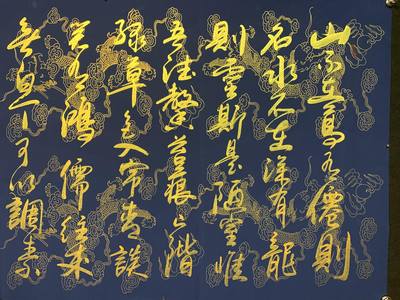 山不在高有僊則
名水不在深有龍
則靈斯是陋室惟
吾德馨苔痕上階
緑草色入帘青談
笑有鴻儒往来
無白丁可以調素